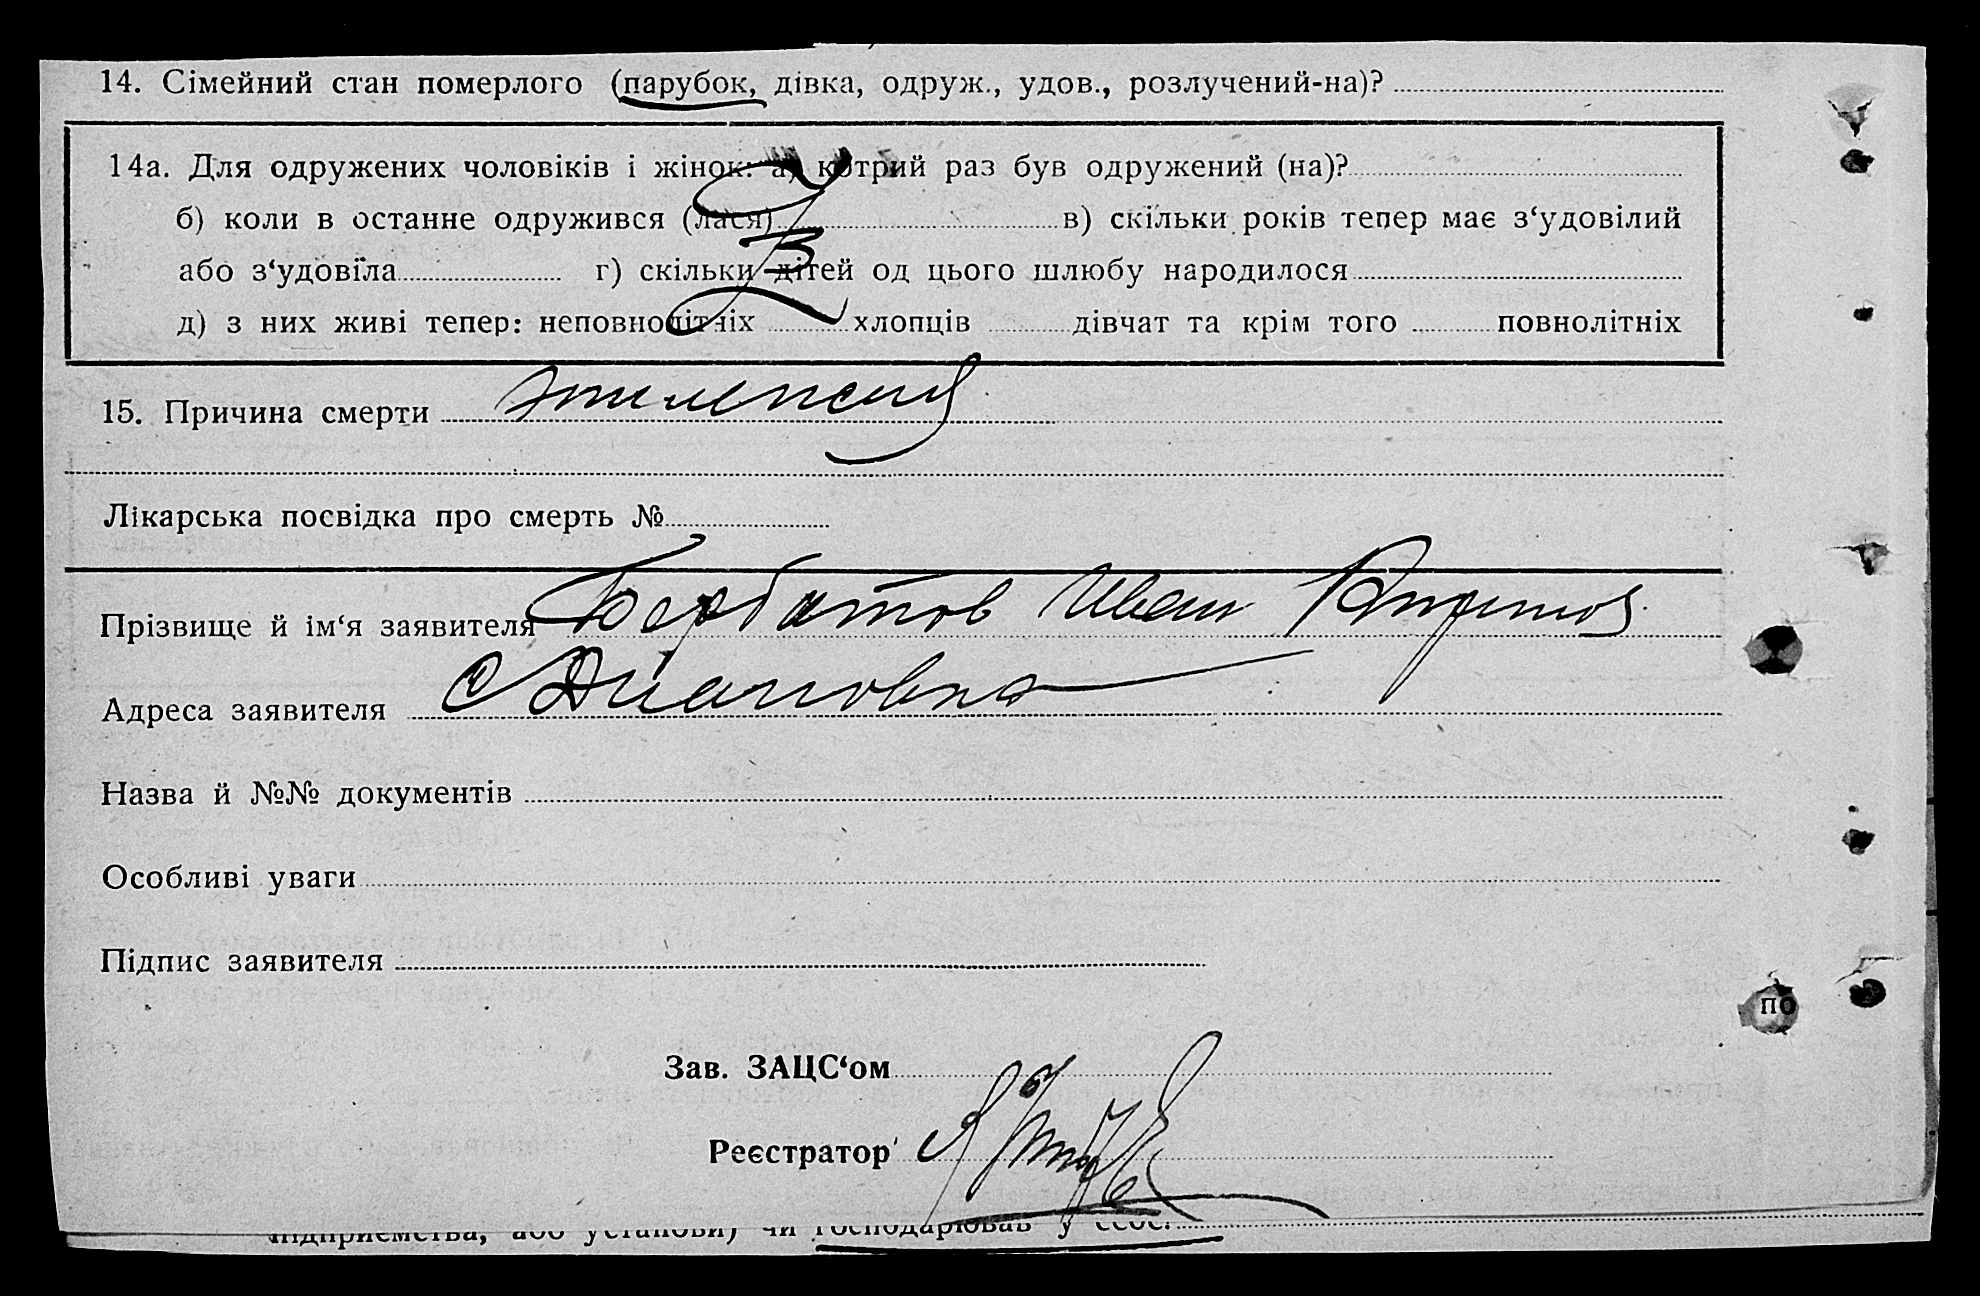 14. Сімейний стан померлого (парубок, дівка, одруж., удов., розлучений-на)?
14а. Для одружених чоловіків і жінок: а) котрий раз був одружений (на)?
б) коли в останне одружився (лася) в) скільки років тепер має з‘удовілий
або з‘удовіла г) скільки дітей од цього шлюбу народилося
д) з них живі тепер: неповнолітніх хлопців дівчат та крім того повнолітніх
15. Причина смерти эпилепсия
Лікарська посвідка про смерть №
Прізвище й ім‘я заявителя Бербатов Иван
Адреса заявителя с Диановка
Назва й №№ документів
Особливі уваги
Підпис заявителя
по
Зав. ЗАЦС‘ом
Реєстратор
підприємства, або установи) чи господарював у